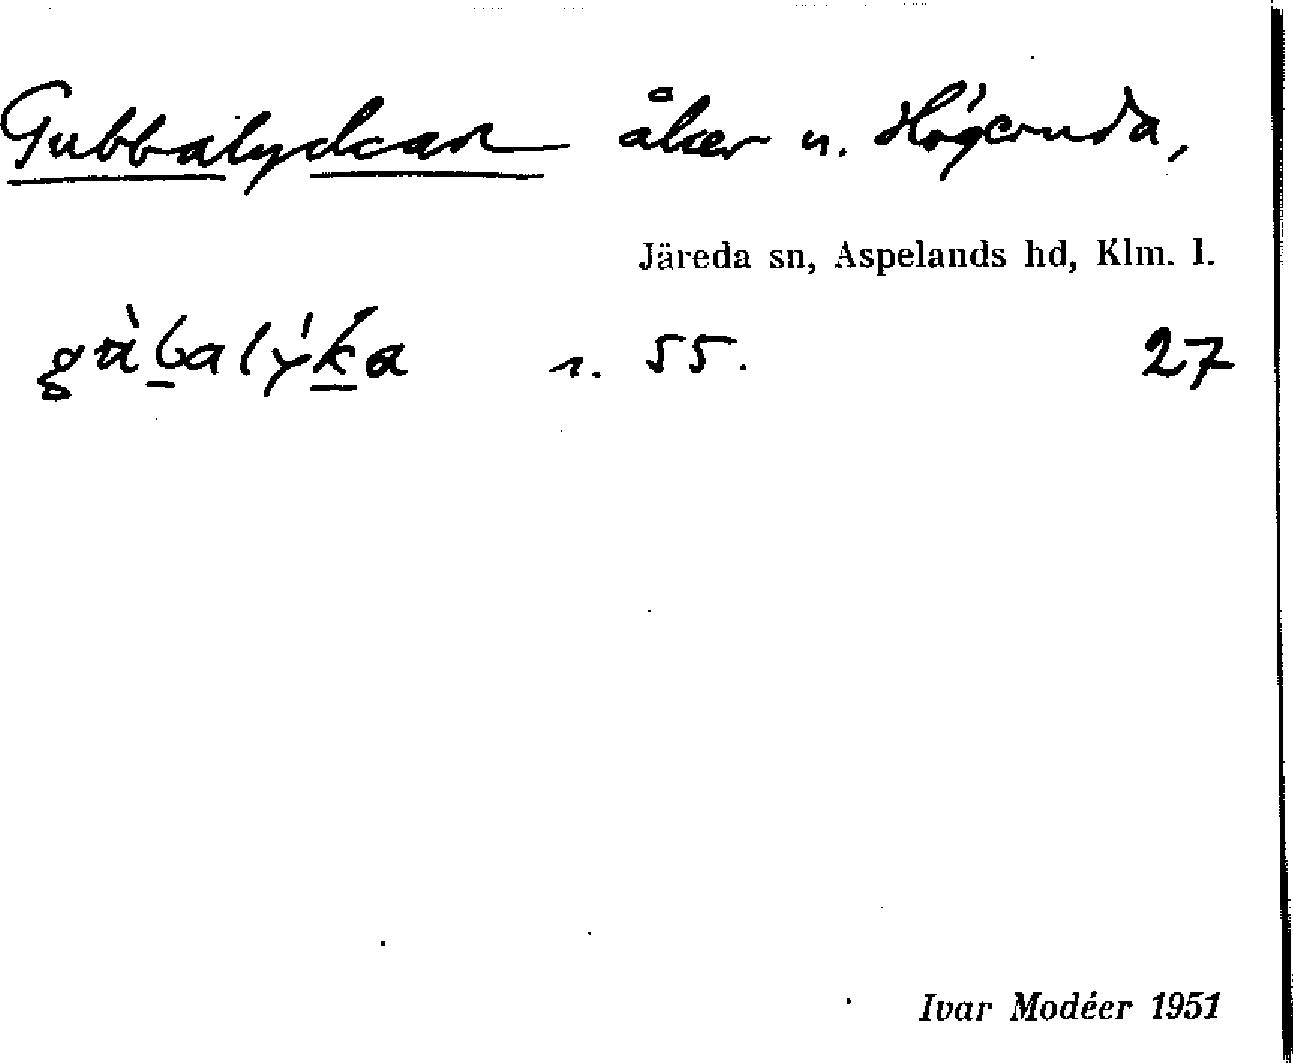 Gubbalyckan åker n. Högeruda,
Järeda sn, Aspelands hd, Klm. l.
gùbalýka r. 55. 27
Ivar Modéer 1951